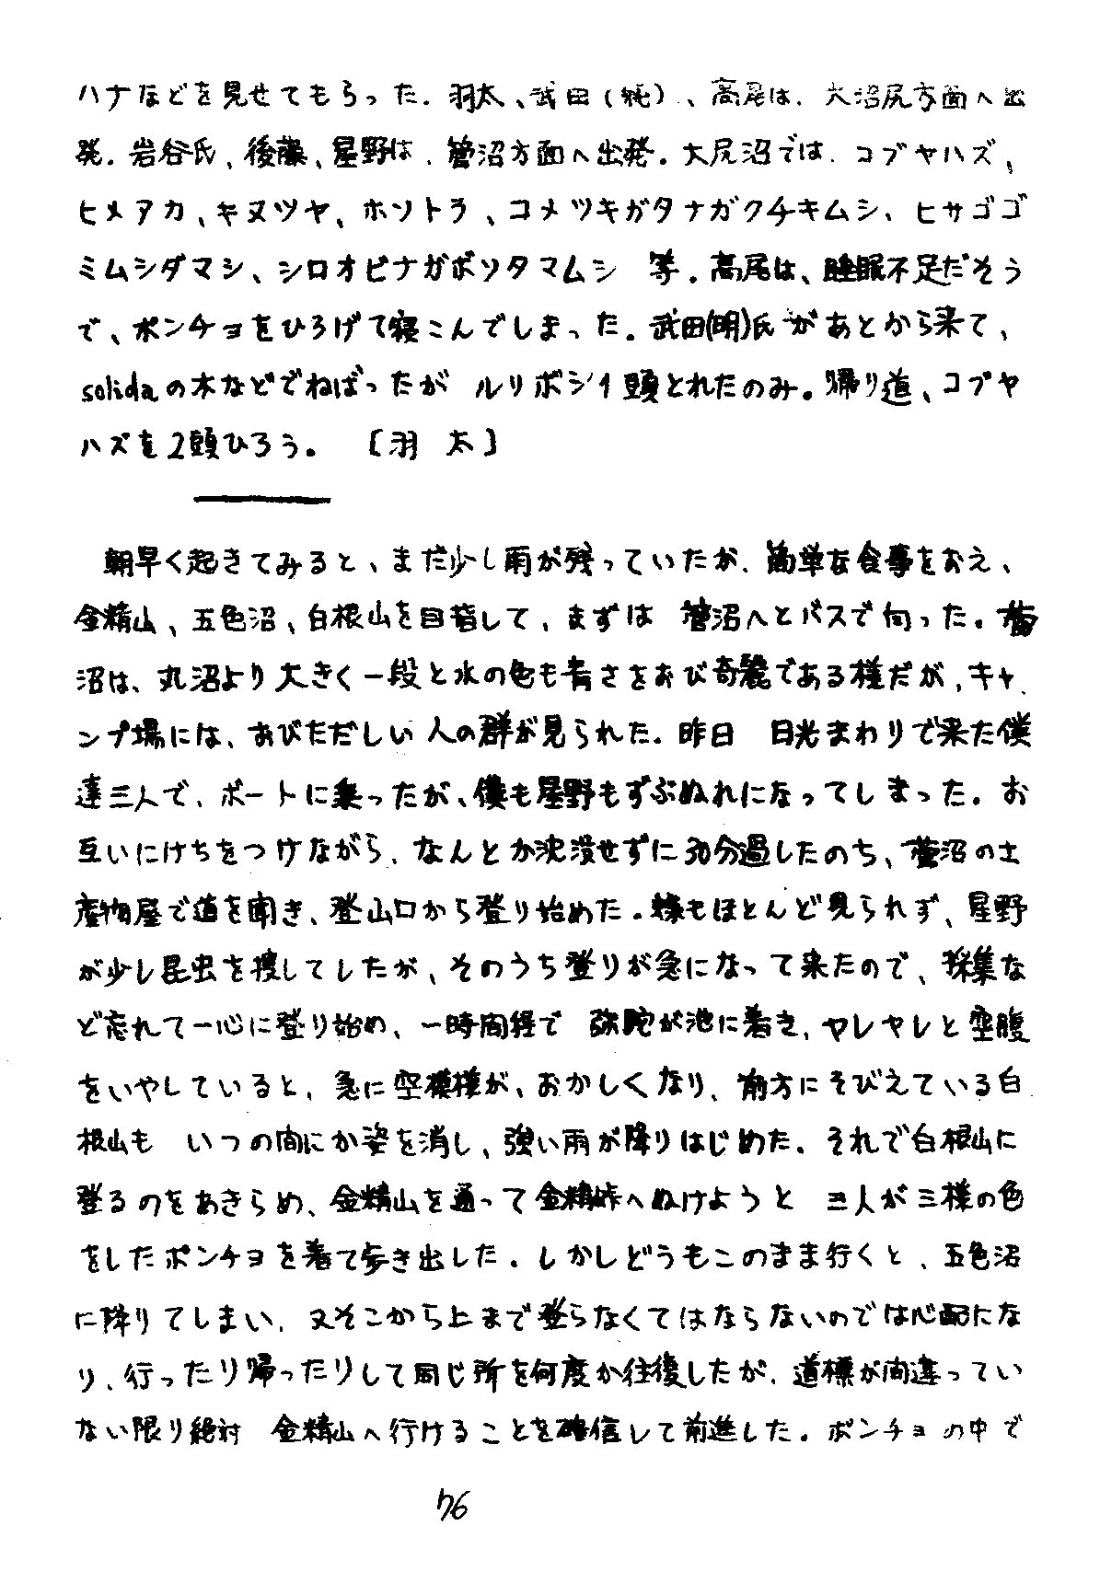 ハナなどを見せてもらった．羽太、武田(純)、高尾は、大沼尻方面へ出
発．岩谷氏、後藤、星野は、菅沼方面へ出発．大尻沼では、コブヤハズ、
ヒメアカ、キヌツヤ、ホソトラ、コメツキガタナガクチキムシ、ヒサゴゴ
ミムシダマシ、シロオビナガボソタマムシ 等．高尾は、睡眠不足だそう
で、ポンチョをひろげて寝こんでしまった．武田(明)氏があとから来て、
solidaの木などでねばったが ルリボシ1頭とれたのみ。帰り道、コブヤ
ハズを2頭ひろう。 〔羽 太〕
朝早く起きてみると、まだ少し雨が残っていたが、簡単な食事をおえ、
金精山、五色沼、白根山を目指して、まずは 菅沼へとバスで向った．菅
沼は、丸沼より大きく一段と水の色も青さをおび奇麗である様だが、キャ
ンプ場には、おびただしい人の群が見られた．昨日 日光まわりで来た僕
達三人で、ボートに乗ったが、僕も星野もずぶぬれになってしまった．お
互いにけちをつけながら、なんとか沈没せずに30分過したのち、菅沼の土
産物屋で道を聞き、登山口から登り始めた．蝶もほとんど見られず、星野
が少し昆虫を捜してしたが、そのうち登りが急になって来たので、採集な
ど忘れて一心に登り始め、一時間経で 弥陀が池に着き、ヤレヤレと空腹
をいやしていると、急に空模様が、おかしくなり、前方にそびえている白
根山も いつの間にか姿を消し、強い雨が降りはじめた．それで白根山に
登るのをあきらめ、金精山を通って金精峠へぬけようと 三人が三様の色
をしたポンチョを着て歩き出した．しかしどうもこのまま行くと、五色沼
に降りてしまい、又そこから上まで登らなくてはならないのでは心配にな
り、行ったり帰ったりして同じ所を何度か往復したが、道標が間違ってい
ない限り絶対 金精山へ行けることを確信して前進した．ポンチョの中で
76